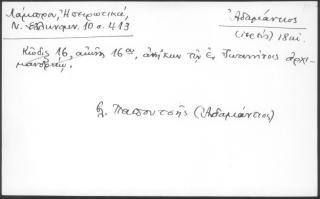 Λάμπρου, Ἠπειρωτικά,
Ν. Ἑλληνομν. 10 σ. 413
Ἀδαμάντιος
(ἱερεύς) 18 αἰ.
Κῶδιξ 16, αἰῶνος 16ου, ἀνῆκων τῇ ἐν Ἰωαννίνοις ἀρχι-
μανδρείῳ.
βλ. Παπουτσῆς (Ἀδαμάντιος)